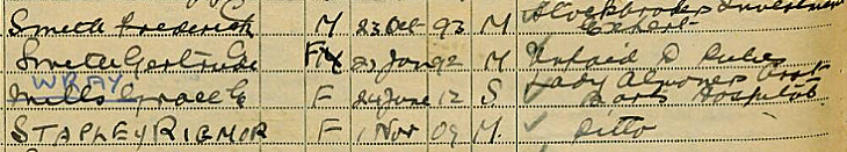 Smith Frederick M 23 Oct 93 M Stockbrokers Investment
Expert
Smith Gertrude F 21 Jan 92 M Unpaid D Duties
WRAY
Mills Grace G F 24 June 12 S Lady Almoners
Barts Hospital
STAPLEY RIGMOR F 1 Nov 09 M. Ditto